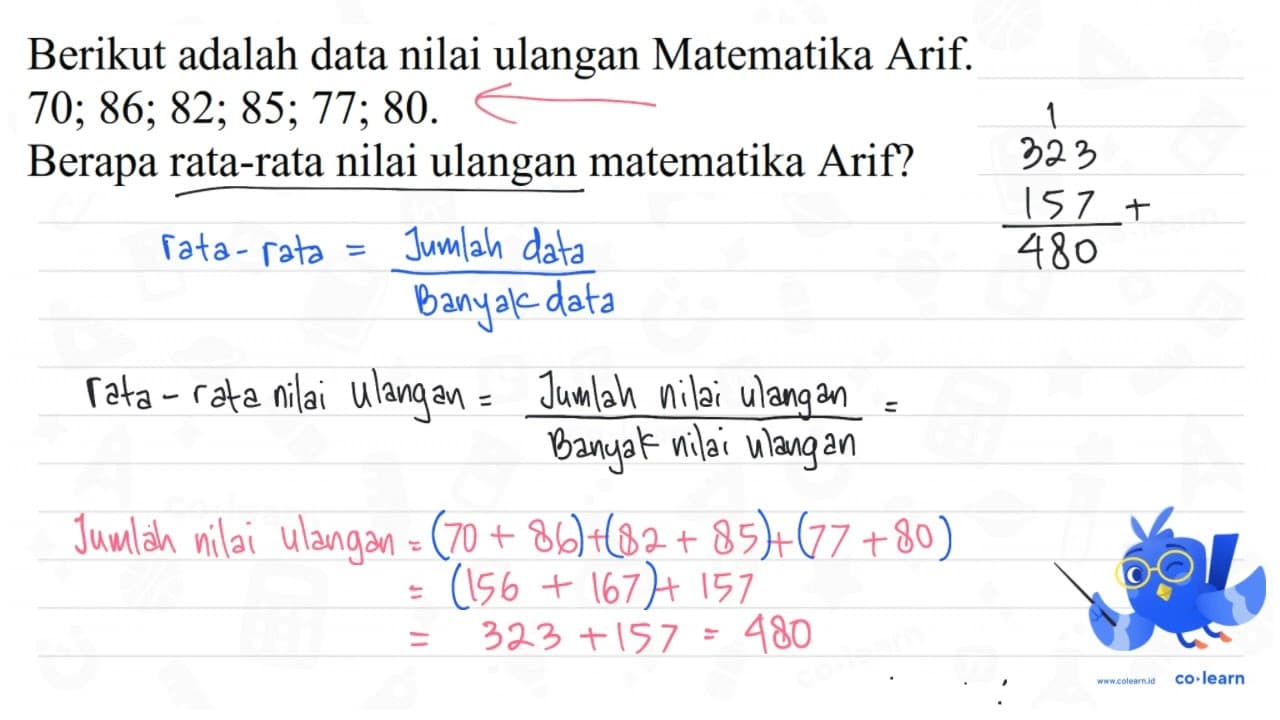 Berikut adalah data nilai ulangan Matematika Arif.
70; 86; 82; 85; 77; 80.
Berapa rata-rata nilai ulangan matematika Arif?
1
323
157 +
480
rata-rata = Jumlah data
Banyak data
rata-rata nilai ulangan = Jumlah nilai ulangan =
Banyak nilai ulangan
Jumlah nilai ulangan = (70 + 86)+(82 + 85)+(77 + 80)
= (156 + 167)+ 157
= 323 + 157 = 480
www.colearn.id co·learn